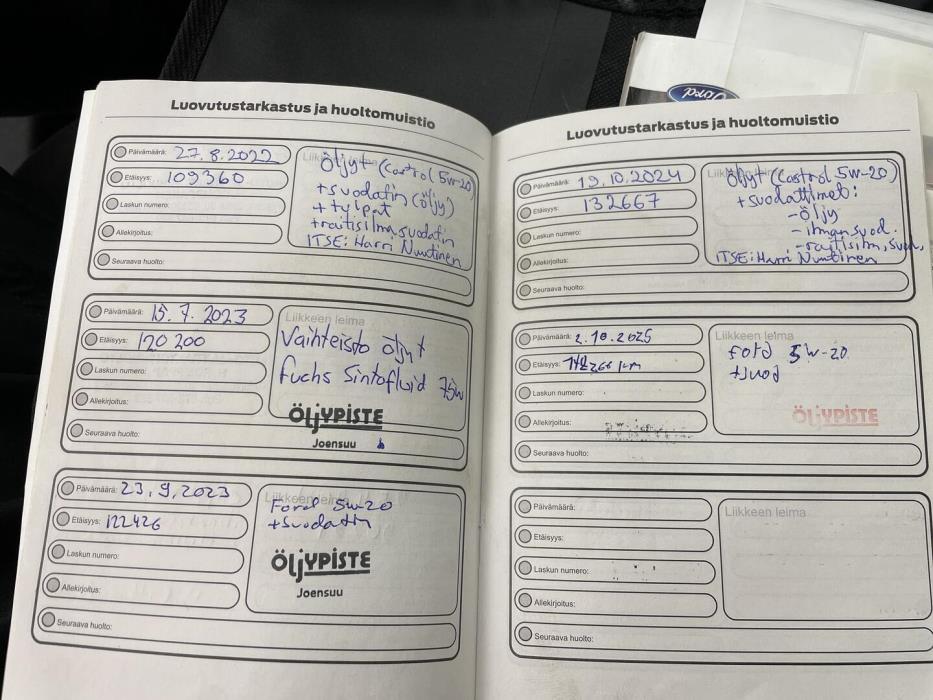 Ford
Luovutustarkastus ja huoltomuistio
Päivämäärä: 27.8.2022
Etäisyys: 109360
Laskun numero:
Allekirjoitus:
Seuraava huolto:
Öljyt (Castrol 5w-20)
+suodatin (öljy)
+tulpat
+raitisilmasuodatin
ITSE: Harri Nuutinen
Päivämäärä: 15.7.2023
Etäisyys: 120200
Laskun numero:
Allekirjoitus:
Seuraava huolto:
Liikkeen leima
Vaihteisto öljyt
fuchs Sintofluid 75w
ÖljYPiSTE
Joensuu
Päivämäärä: 23.9.2023
Etäisyys: 122426
Laskun numero:
Allekirjoitus:
Seuraava huolto:
Liikkeen leima
Ford 5w-20
+suodatin
ÖljYPiSTE
Joensuu
Luovutustarkastus ja huoltomuistio
Päivämäärä: 19.10.2024
Etäisyys: 132667
Laskun numero:
Allekirjoitus:
Seuraava huolto:
Öljyt (Castrol 5w-20)
+suodattimet:
-öljy
-ilmansuod.
-raitisilm.suod.
ITSE: Harri Nuutinen
Päivämäärä: 2.10.2025
Etäisyys: km
Laskun numero:
Allekirjoitus:
Seuraava huolto:
Liikkeen leima
Ford 5w-20
+suod
ÖljYPiSTE
Päivämäärä:
Etäisyys:
Laskun numero:
Allekirjoitus:
Seuraava huolto:
Liikkeen leima